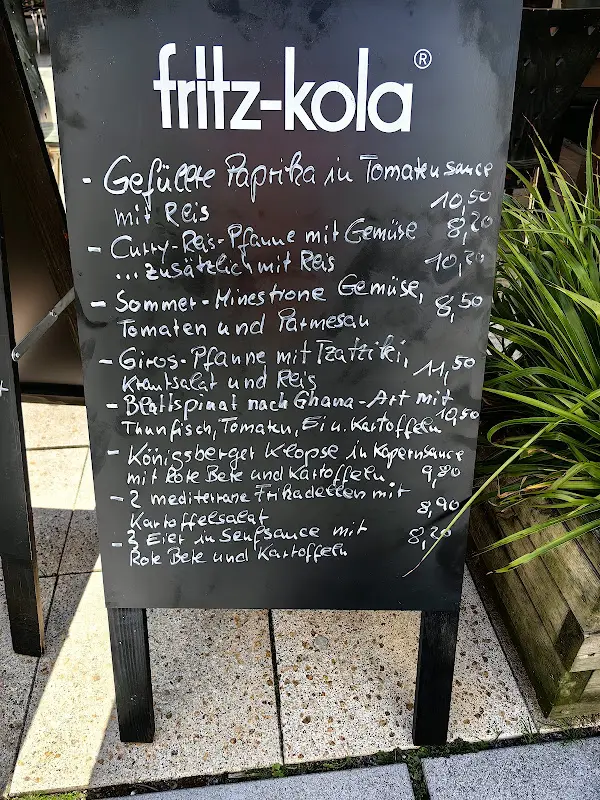 fritz-kola®
- Gefüllte Paprika in Tomatensauce
mit Reis 10,50
- Curry-Reis-Pfanne mit Gemüse 8,20
... zusätzlich mit Reis 10,20
- Sommer-Minestrone Gemüse,
Tomaten und Parmesan 8,50
- Giros-Pfanne mit Tzatziki,
Krautsalat und Reis 11,50
- Blattspinat nach Ghana-Art mit
Thunfisch, Tomaten, Ei u. Kartoffeln 10,50
- Königsberger Klopse in Kapernsauce
mit Rote Bete und Kartoffeln 9,80
- 2 mediterrane Frikadellen mit
Kartoffelsalat 8,90
- 2 Eier in Senfsauce mit
Rote Bete und Kartoffeln 8,20